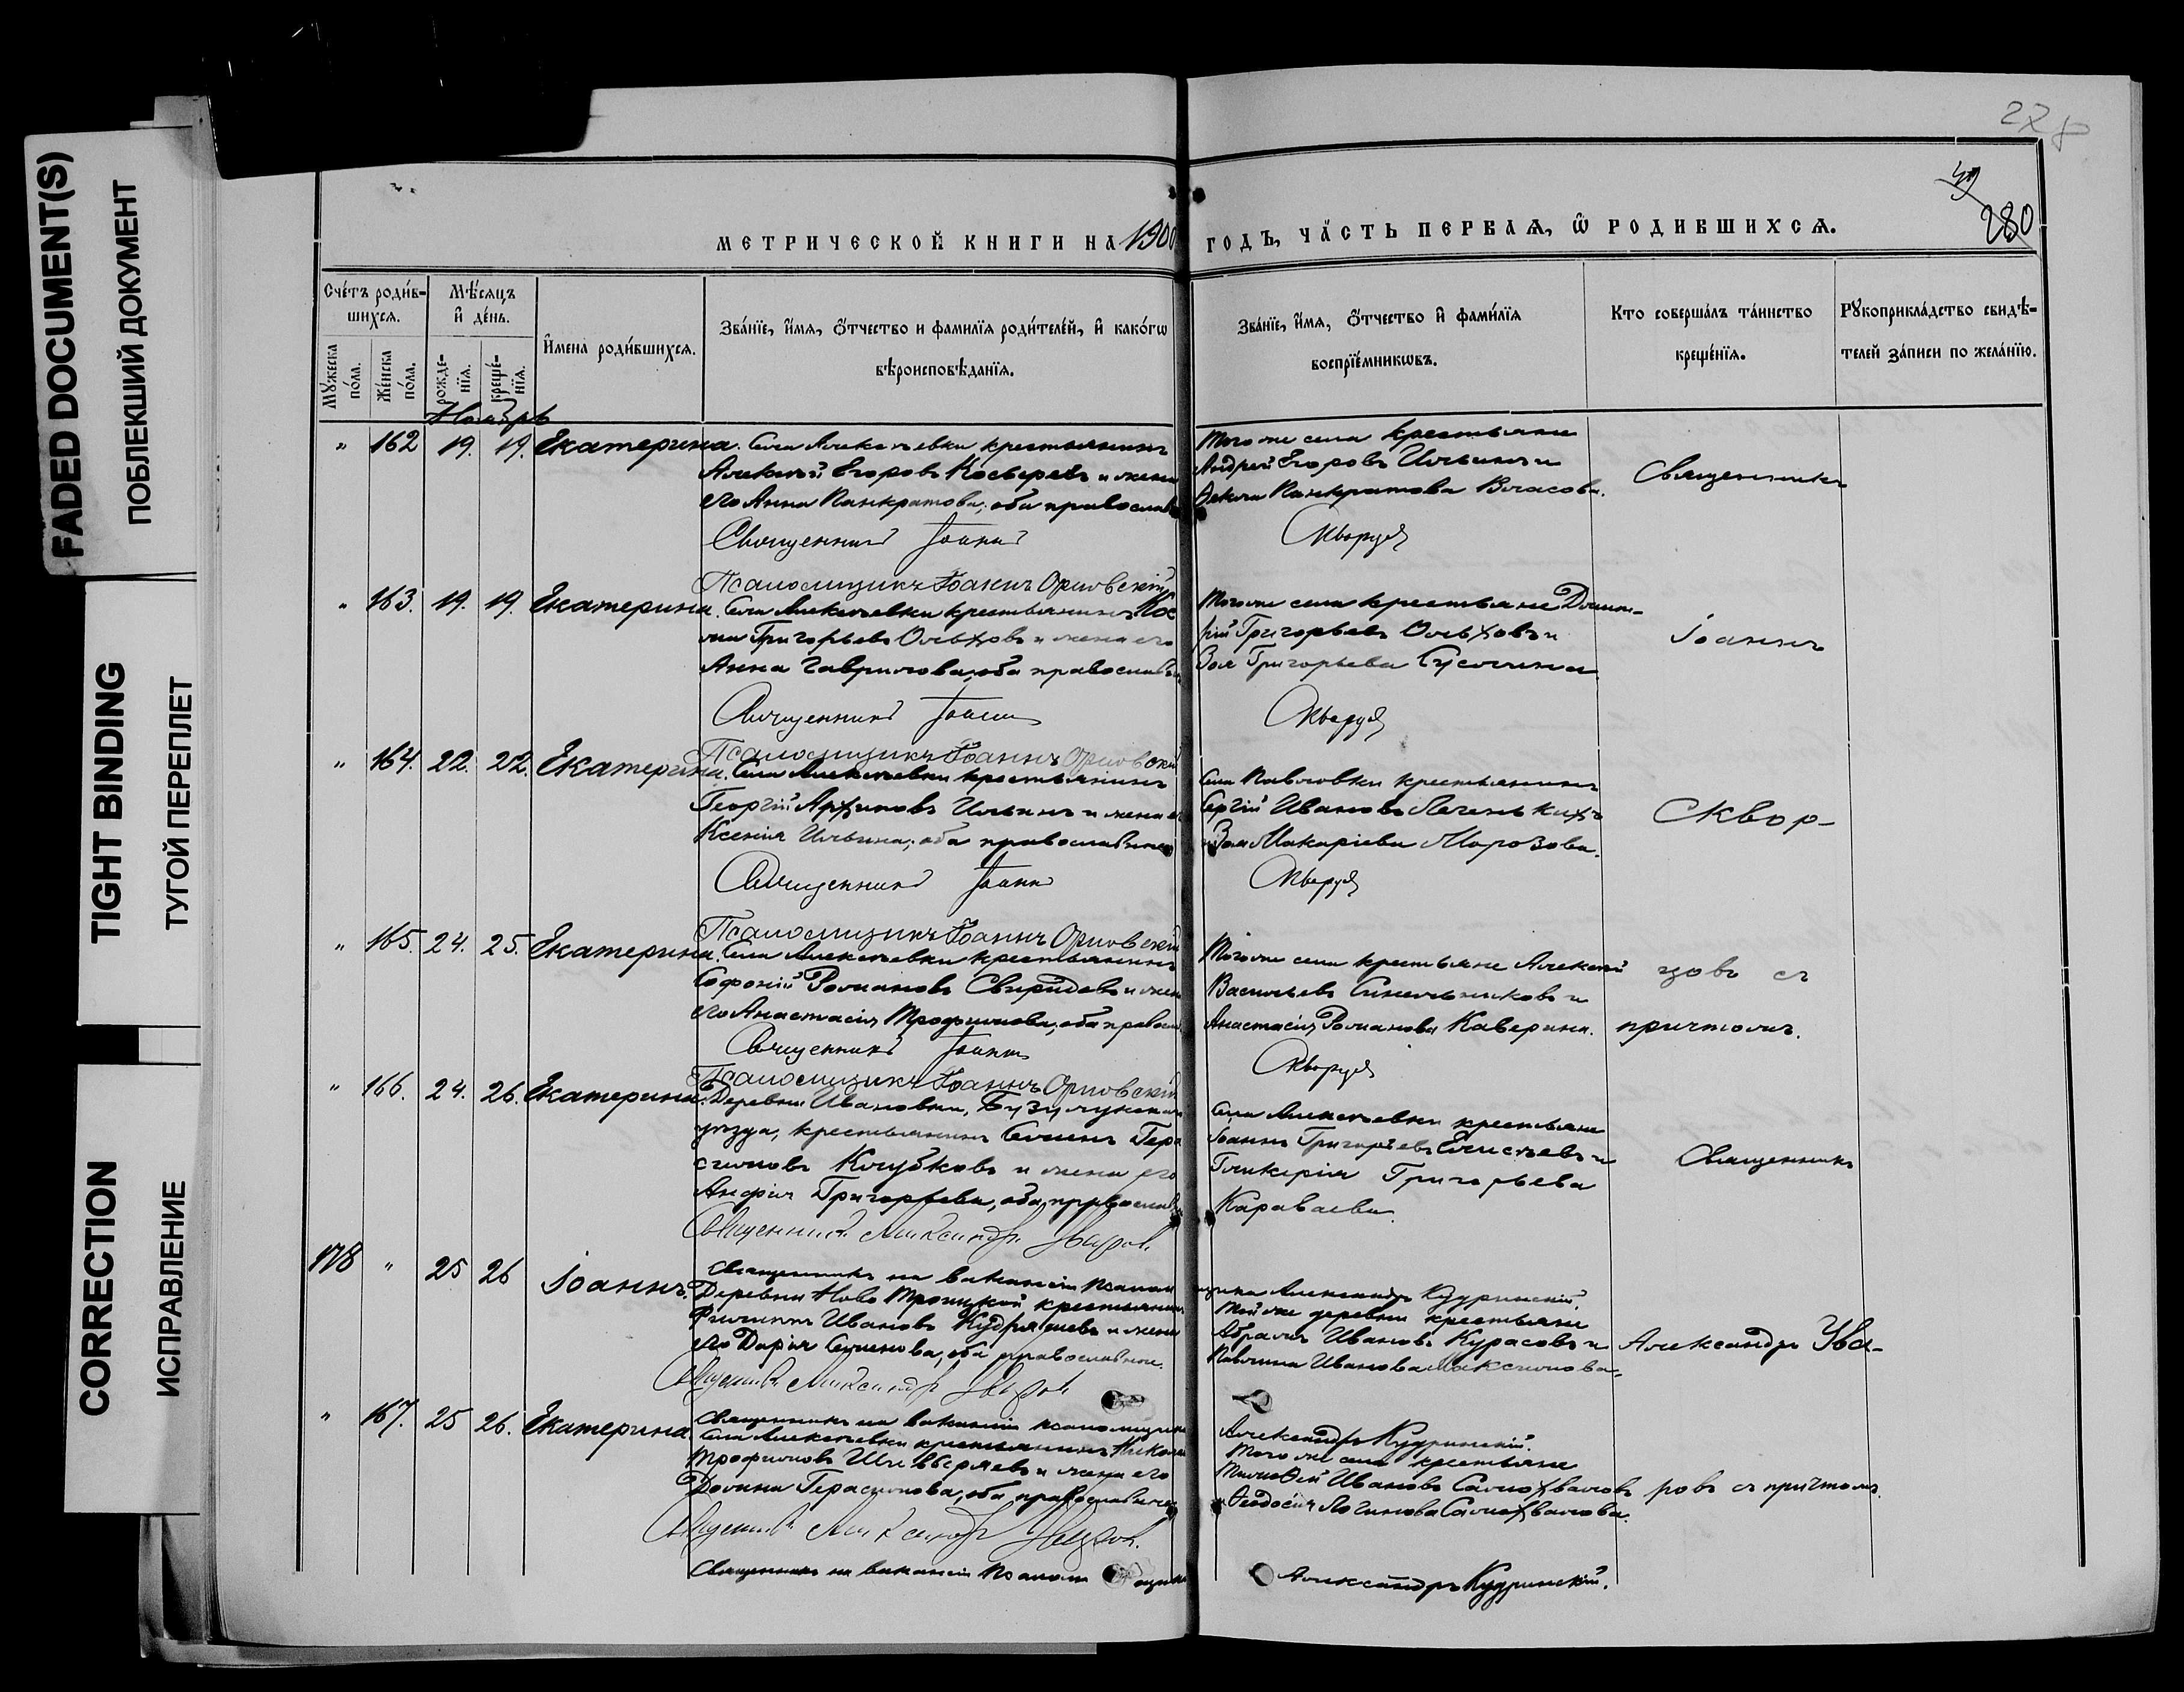 FADED DOCUMENT(S)
ПОБЛЕКШИЙ ДОКУМЕНТ
TIGHT BINDING
ТУГОЙ ПЕРЕПЛЕТ
CORRECTION
ИСПРАВЛЕНИЕ
280
МЕТРИЧЕСКОЙ КНИГИ НА 1900 ГОДЪ, ЧАСТЬ ПЕРВАЯ, Ѿ РОДИВШИХСЯ.
Счетъ родив-
шихся.
Мужеска
пола.
Женска
пола.
Мѣсяцъ
и день.
рожде-
нія.
креще-
нія.
Имена родившихся.
Званіе, имя, отчество и фамилія родителей, и какогѡ
вѣроисповѣданія.
Званіе, имя, отчество и фамилія
воспріемникѡвъ.
Кто совершалъ таинство
крещенія.
Рукоприкладство свидѣ-
телей записи по желанію.
Ноябрь
" 162 19. 19. Екатерина. Села Алексѣевки крестьянинъ
Алексѣй Егоровъ Косыревъ и жена
его Анна Панкратова, оба православ
Того же села крестьяне
Андрей Егоровъ Ильинъ и
Фекла Панкратова Власова.
Священникъ
Священникъ Іоаннъ Скворцовъ
Псаломщикъ Іоаннъ Орловскій
" 163. 19. 19. Екатерина. Села Алексѣевки крестьянинъ Кос
ма Григорьевъ Ольховъ и жена его
Анна Гаврилова, оба православн
Того же села крестьяне
Григорьевъ Ольховъ и
Зоя Григорьева
Іоаннъ
Священникъ Іоаннъ Скворцовъ
Псаломщикъ Іоаннъ Орловскій
" 164. 22. 22. Екатерина. Села Алексѣевки крестьянинъ
Георгій Архиповъ Ильинъ и жена е
Ксенія Ильина, оба православные
Села Павловки крестьянинъ
Сергій Ивановъ
и Зоя Макаріева Морозова.
Сквор-
Священникъ Іоаннъ Скворцовъ
Псаломщикъ Іоаннъ Орловскій
" 165. 24. 25. Екатерина. Села Алексѣевки крестьянинъ
Софоній Романовъ Свиридовъ и жен
его Анастасія Трофимова, оба правосл
Того же села крестьяне Алексѣй
Васильевъ Синельниковъ и
Анастасія Романова Каверина.
цовъ съ
причтомъ.
Священникъ Іоаннъ Скворцовъ
Псаломщикъ Іоаннъ Орловскій
" 166. 24. 26. Екатерина. Деревни Ивановки, Бузулукскаго
уѣзда, крестьянинъ Семенъ Гера
симовъ Клубковъ и жена его
Анфія Григорьева, оба православ
Села Алексѣевки крестьяне
Іоаннъ Григорьевъ Елисѣевъ и
Гликерія Григорьева
Караваева.
Священникъ
Священникъ Александръ Уваровъ
Священникъ на вакансіи псаломщика Александръ Кудринскій.
178 " 25 26 Іоаннъ. Деревни Ново Троицкой крестьянинъ
Филиппъ Ивановъ Кудряшевъ и жена
его Дарія Семенова, оба православные.
Той же деревни крестьяне
Абрамъ Ивановъ Курасовъ и
Павлина Иванова Максимова.
Александръ Ува-
Священникъ Александръ Уваровъ
Священникъ на вакансіи псаломщика Александръ Кудринскій.
" 167. 25 26. Екатерина. Села Алексѣевки крестьянинъ Никола
Трофимовъ и жена его
Домна Герасимова, оба православные
Того же села крестьяне
Тимофей Ивановъ Самохваловъ
и Феодосія Логинова Самохвалова.
ровъ съ причтомъ.
Священникъ Александръ Уваровъ.
Священникъ на вакансіи псаломщика Александръ Кудринскій.